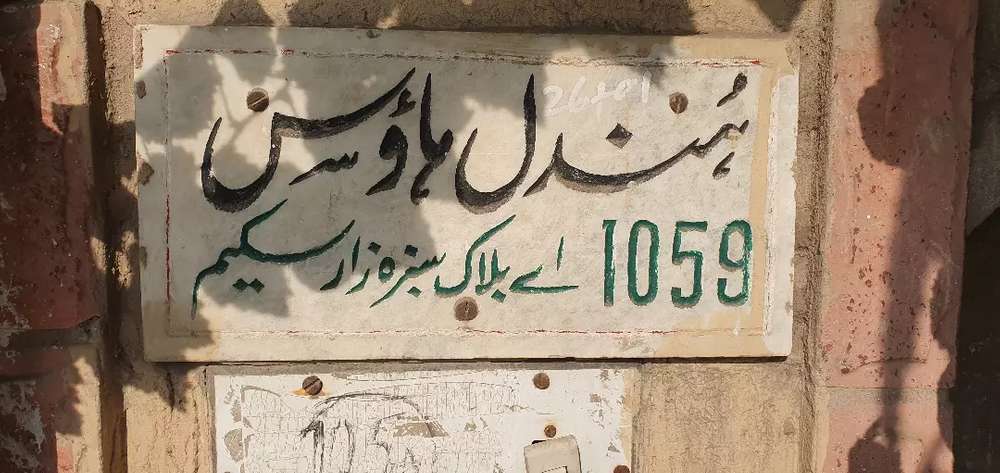 ہُندل ہاؤس
1059 اے بلاک سبزہ زار سکیم